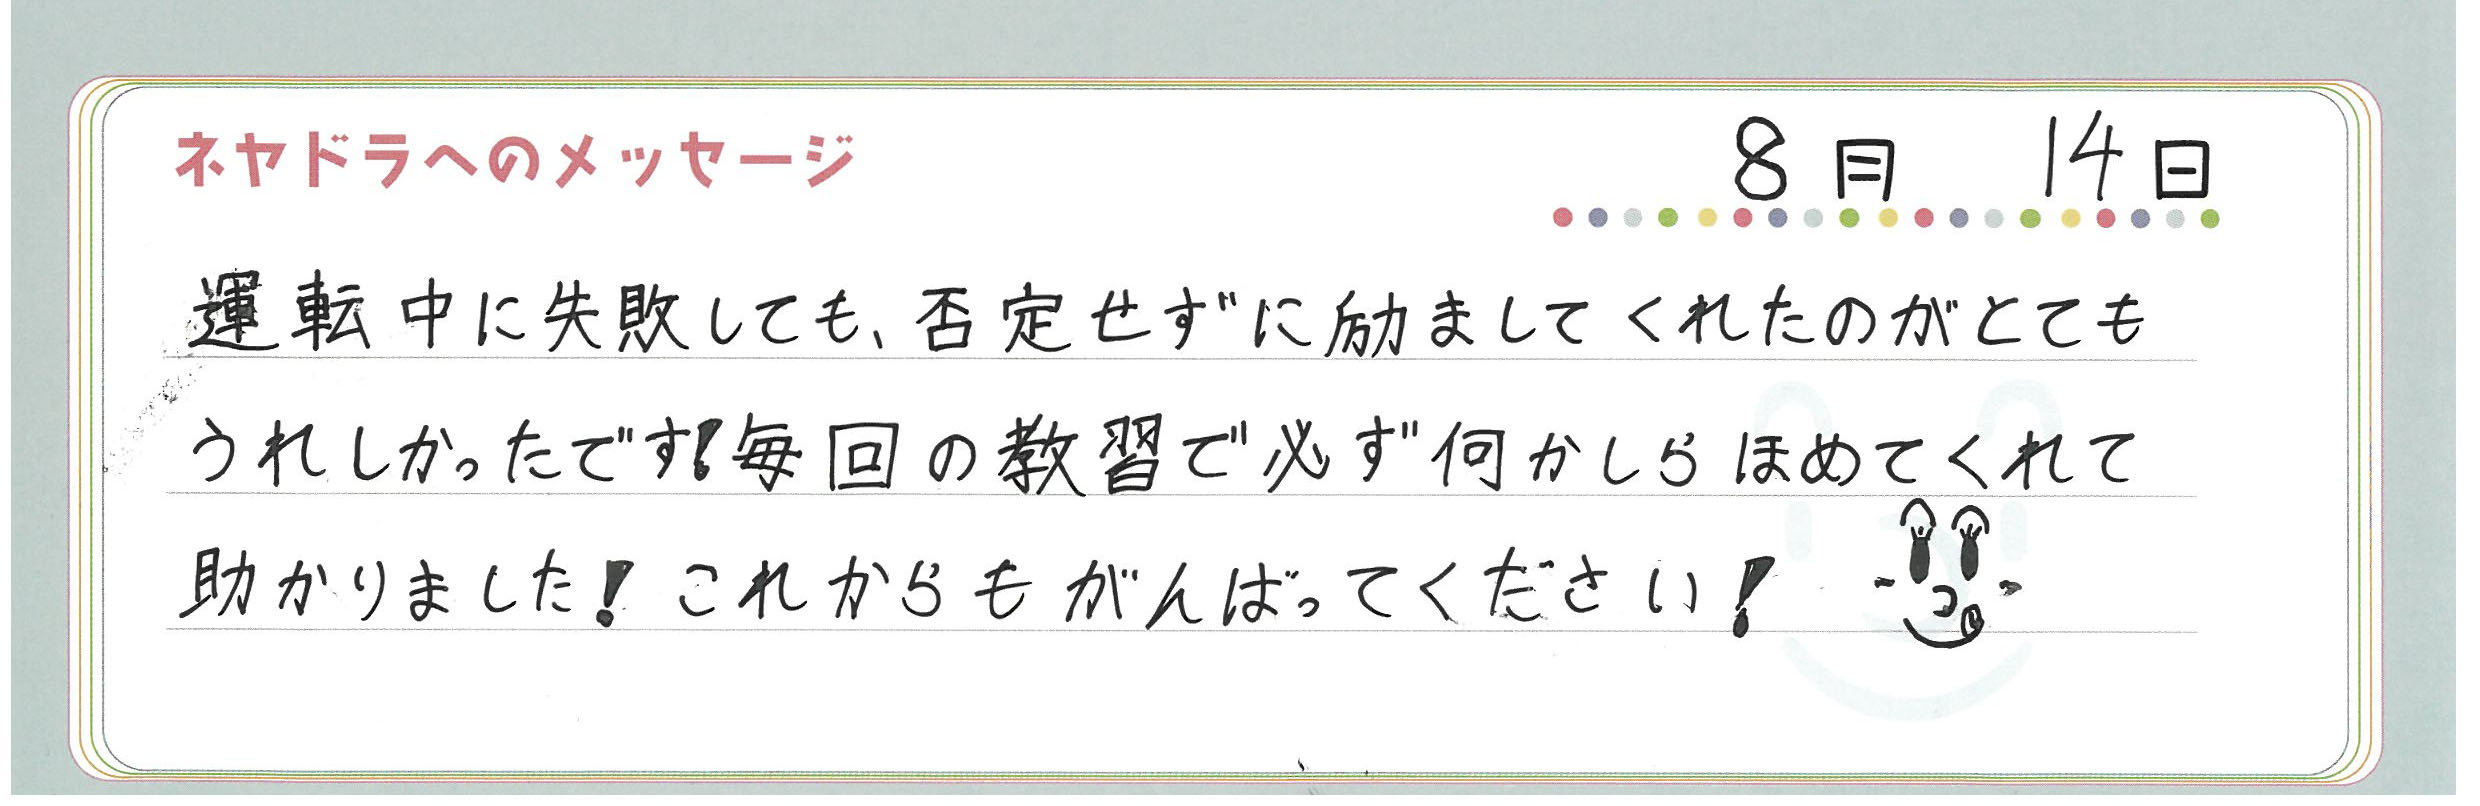 ネヤドラへのメッセージ
8月 14日
運転中に失敗しても、否定せずに励ましてくれたのがとても
うれしかったです!毎回の教習で必ず何かしらほめてくれて
助かりました!これからもがんばってください!